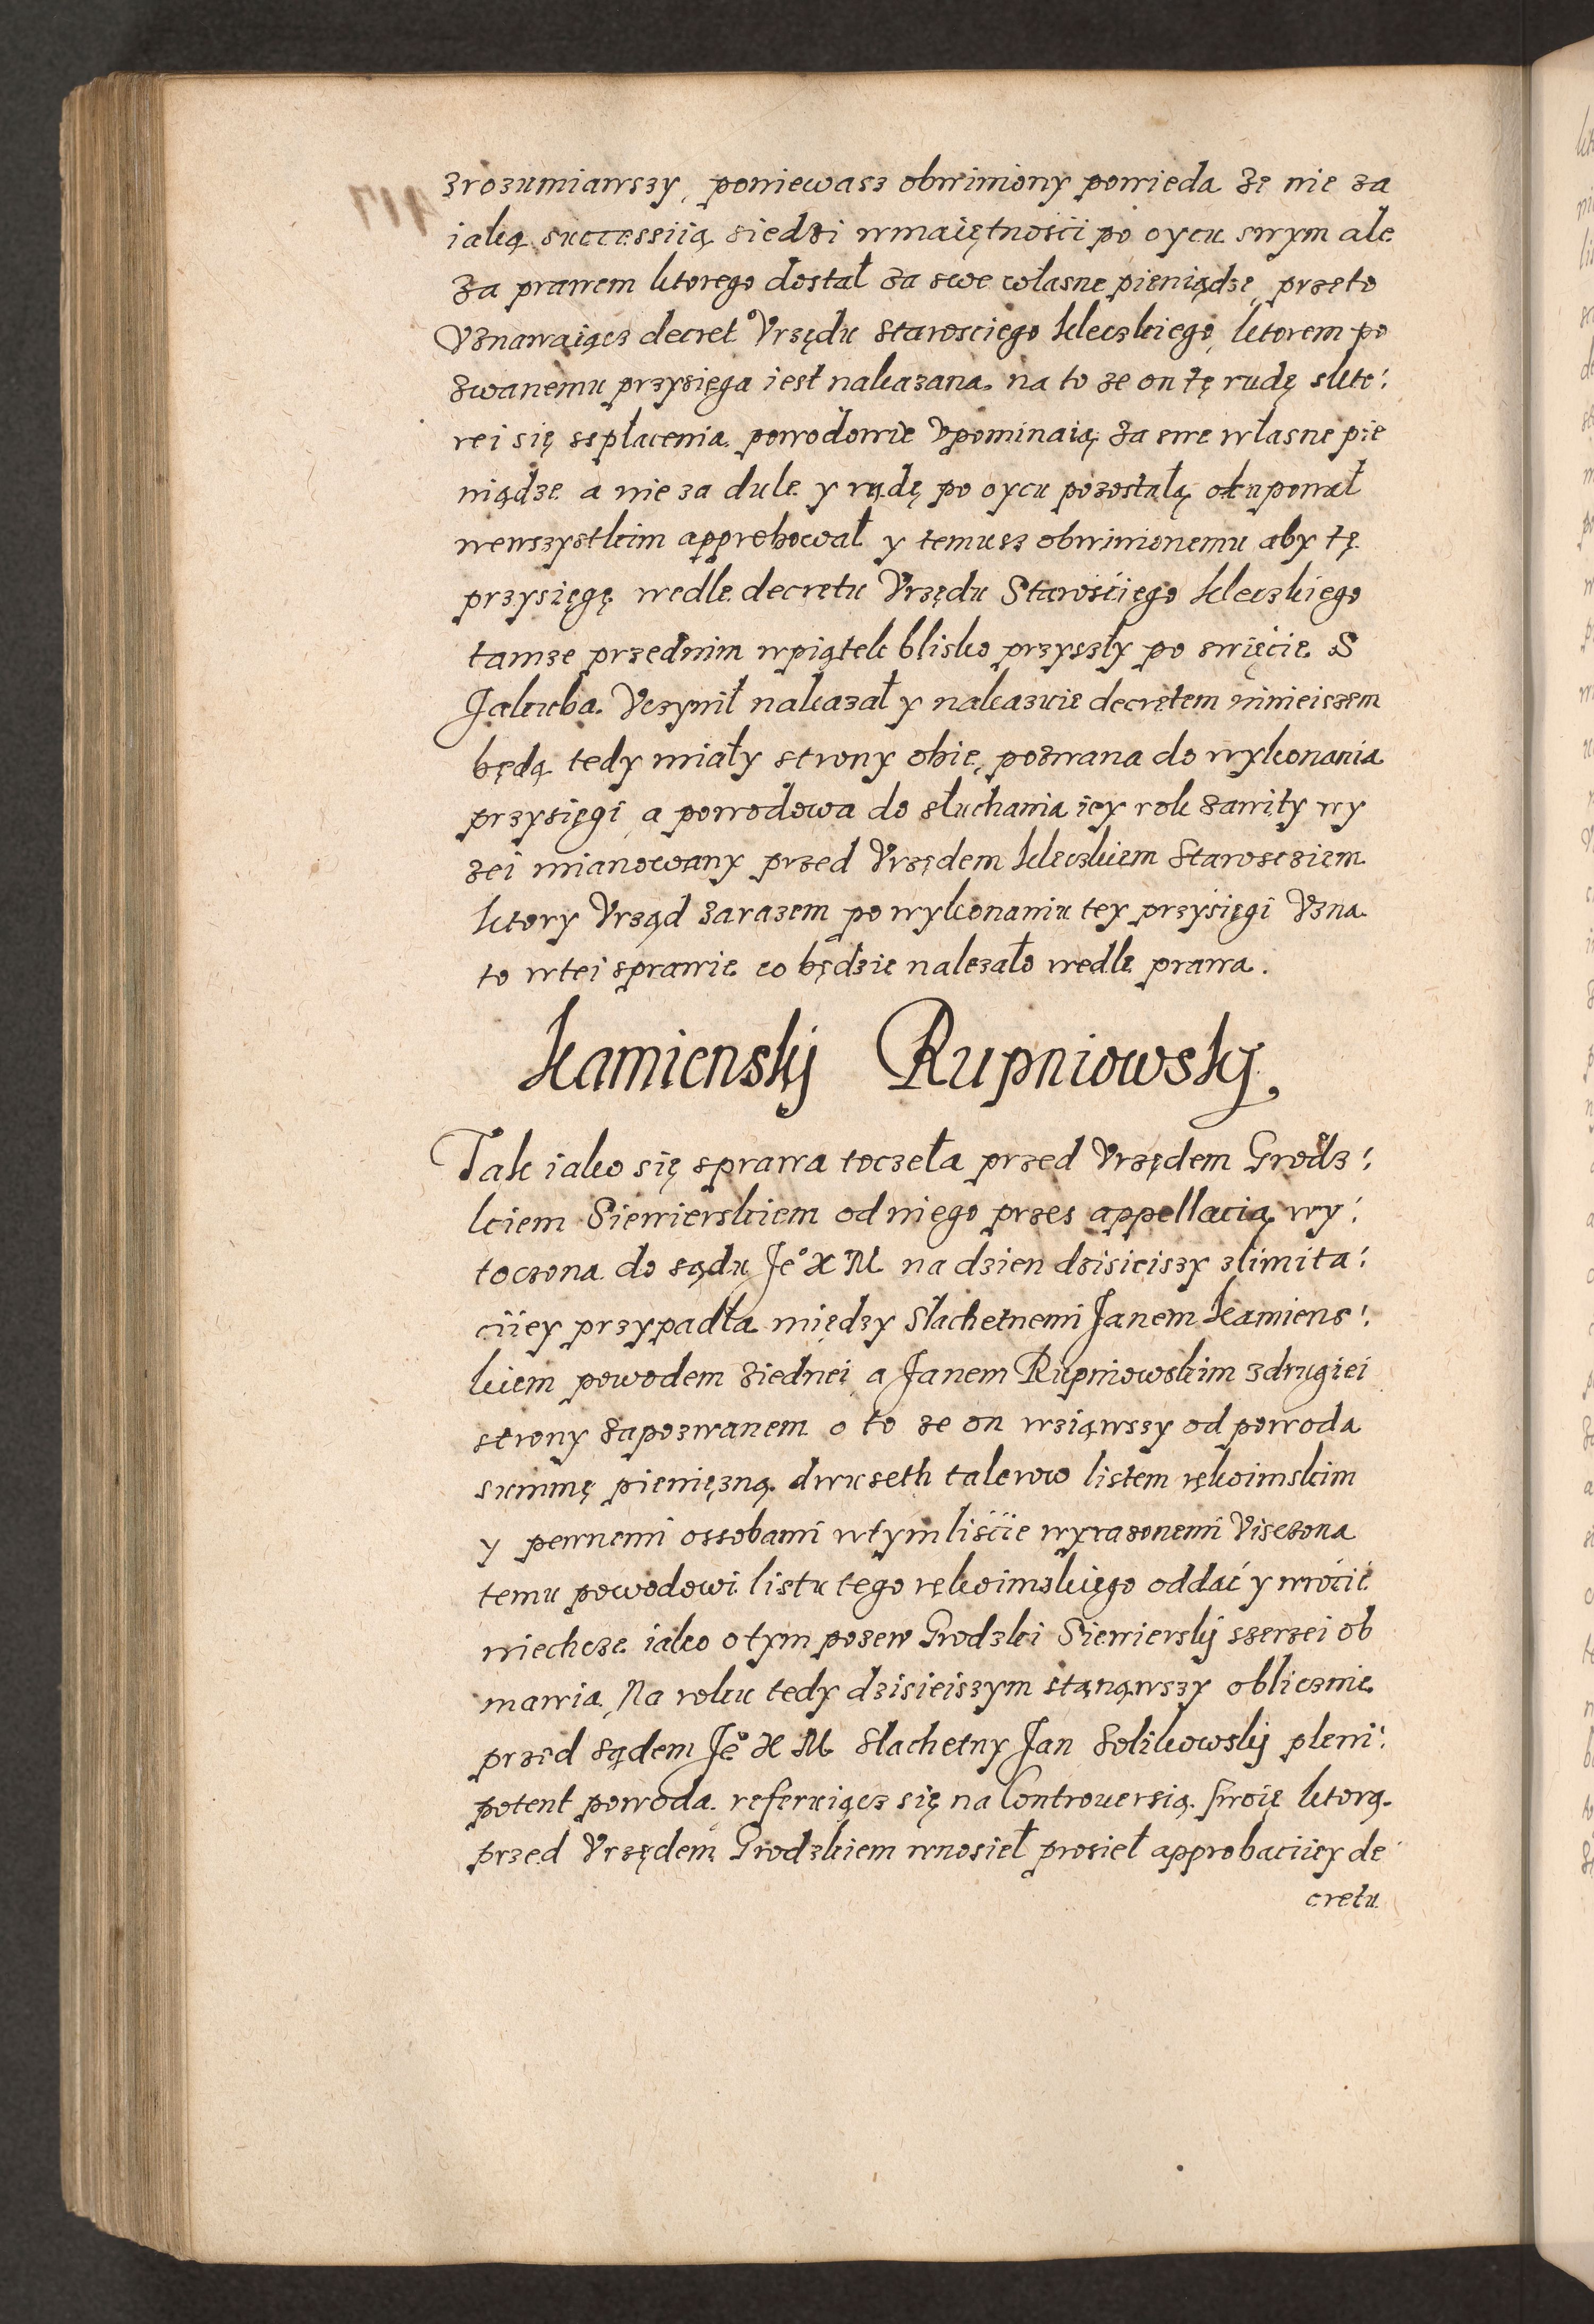 zrozumiawszy, poniewasz obwiniony powieda że nie za
iaką successiią siedzi wmaiętnosci po oycu swym ale
za prawem ktorego dostał za swe własne pieniądze, przeto
Vznawaiącz decret Vrzędu Starosciego kleczkiego, ktorem po
zwanemu przysięga iest nakazana na to ze on tę rudę skto:
rei się spłacenia powodowie vpominaią za swe własne pie
niądze a nie za dule y rudę po oycu pozostałą okupował
wewszystkim approbował y temusz obwinionemu aby tę
przysięgę wedle decretu Vrzędu Starosciego kleczkiego
tamze przednim wpiątek blisko przyszły po swięcie S
Jakuba. Vczynił nakazał y nakazuie decretem ninieiszem
będą tedy miały strony obie, pozwana do wykonania
przysięgi, a powodowa do słuchania iey rok zawiły wy
zei mianowany przed Vrzędem kleczkiem Staroscziem
ktory Vrząd zarazem po wykonaniu tey przysięgi Vzna
to wtei sprawie co będzie nalezało wedle prawa.
Kamienskj Rupniowskj.
Tak iako się sprawa toczeła przed Vrzędem Grodz:
kiem Siewierskiem od niego przes appellacią wy:
toczona do sądu Je° X M na dzien dzisieiszy zlimita:
ciiey przypadła między Slachetnemi Janem Kamiens:
kiem powodem ziednei a Janem Rupniowskim zdrugiei
strony zapozwanem o to ze on wziąwszy od powoda
summę pienięzną dwuseth talerow listem rękoimskim
y pewnemi ossobami wtym liscie wyrazonemi Visczona
temu powodowi listu tego rękoimskiego oddać y wrocić
niechcze iako otym pozew Grodzki Siewierskj szerzei ob
mawia. Na roku tedy dzisieiszym stanąwszy oblicznie
przed sądem Je° X M Slachetny Jan Solikowskj pleni:
potent powoda referuiącz się na Controuersią swoię ktorą
przed Vrzędem Grodzkiem wnosieł prosieł approbaciiey de
cretu